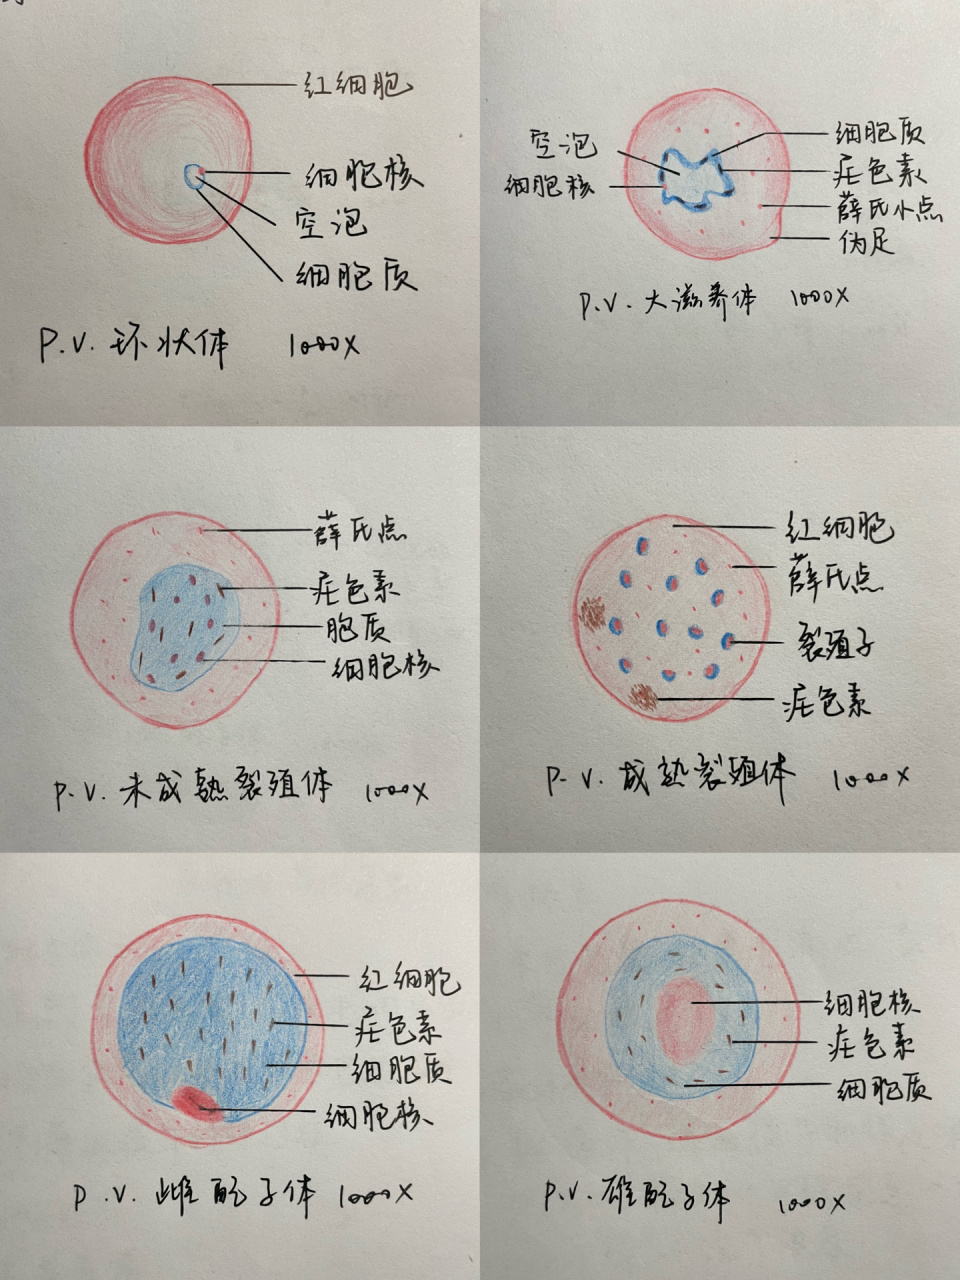 红细胞
细胞核
空泡
细胞质
P.V. 环状体 1000X
空泡
细胞核
细胞质
疟色素
薛氏小点
伪足
P.V. 大滋养体 1000X
薛氏点
疟色素
胞质
细胞核
P.V. 未成熟裂殖体 1000X
红细胞
薛氏点
裂殖子
疟色素
P.V. 成熟裂殖体 1000X
红细胞
疟色素
细胞质
细胞核
P.V. 雌配子体 1000X
细胞核
疟色素
细胞质
P.V. 雄配子体 1000X